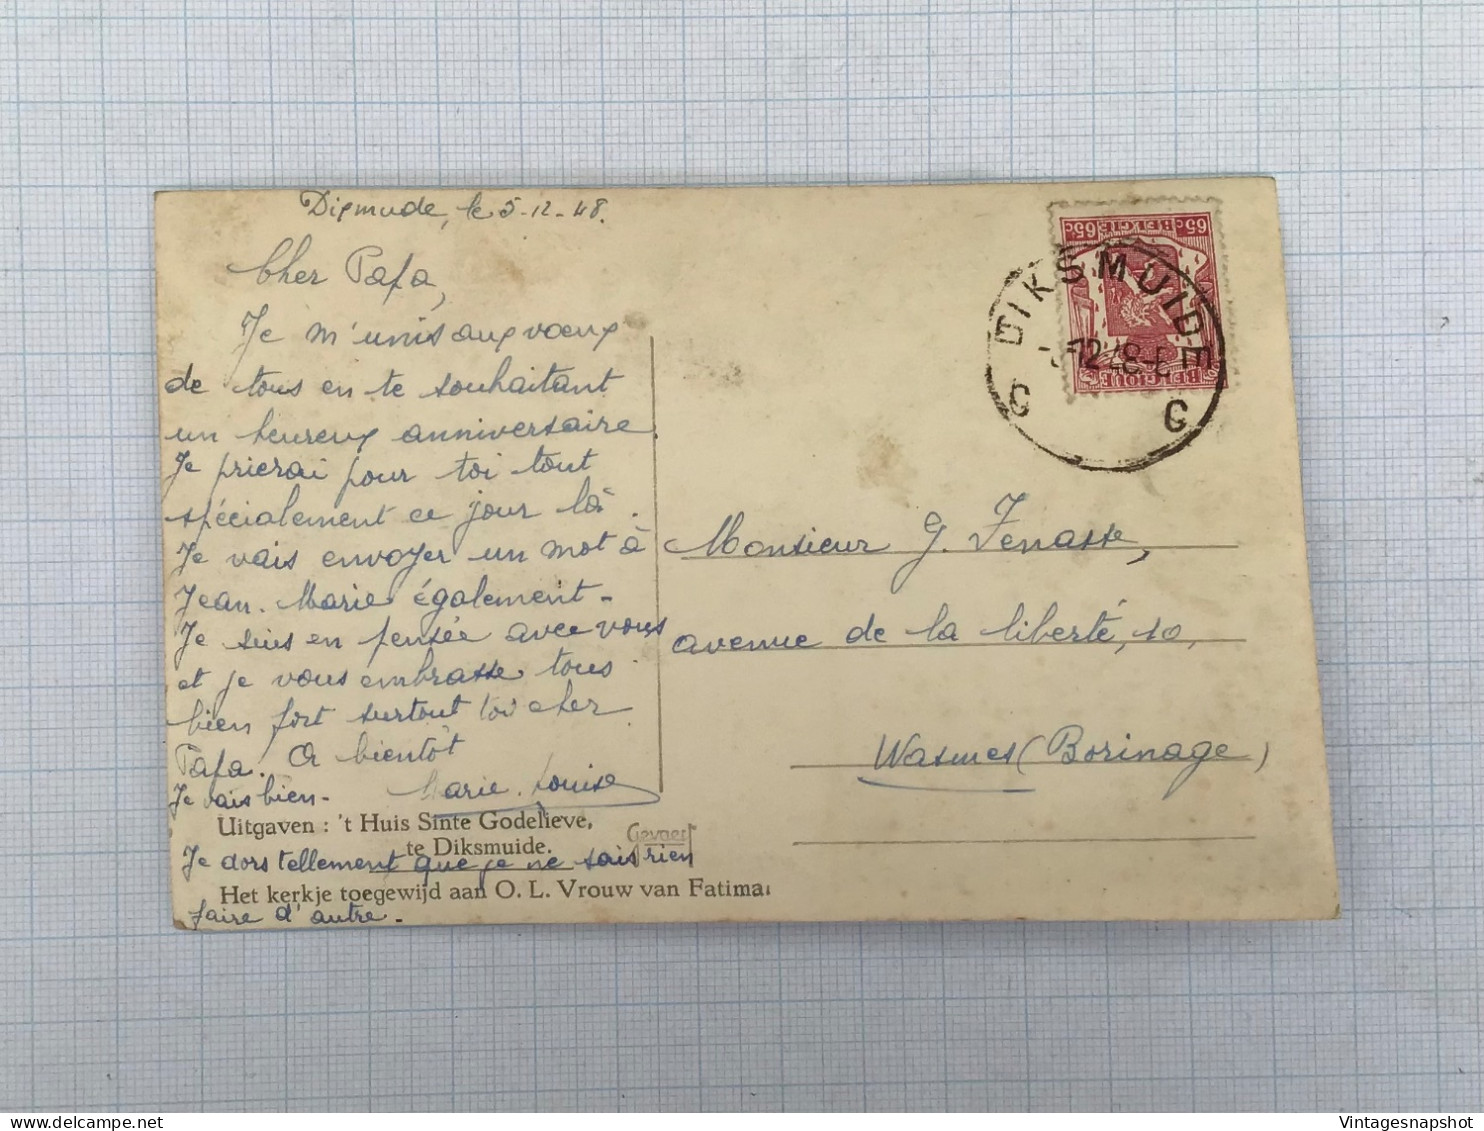 Dixmude, le 5-12-48.
Cher Papa,
Je m'unis aux voeux
de tous en te souhaitant
un heureux anniversaire
Je prierai pour toi tout
spécialement ce jour là.
Je vais envoyer un mot à
Jean-Marie également-
Je suis en pensée avec vous
et je vous embrasse tous
bien fort surtout toi cher
Papa. A bientôt
Marie-Louise
Je vais bien-
Uitgaven : 't Huis Sinte Godelieve,
te Diksmuide.
Gevaert
Je dors tellement que je ne sais rien
Het kerkje toegewijd aan O. L. Vrouw van Fatima
faire d'autre-
65c BELGIE 65c
BELGIQUE
DIKSMUIDE
C C
Monsieur G. Fenasse,
avenue de la liberté, 10,
Wasmes (Borinage)
Vintagesnapshot